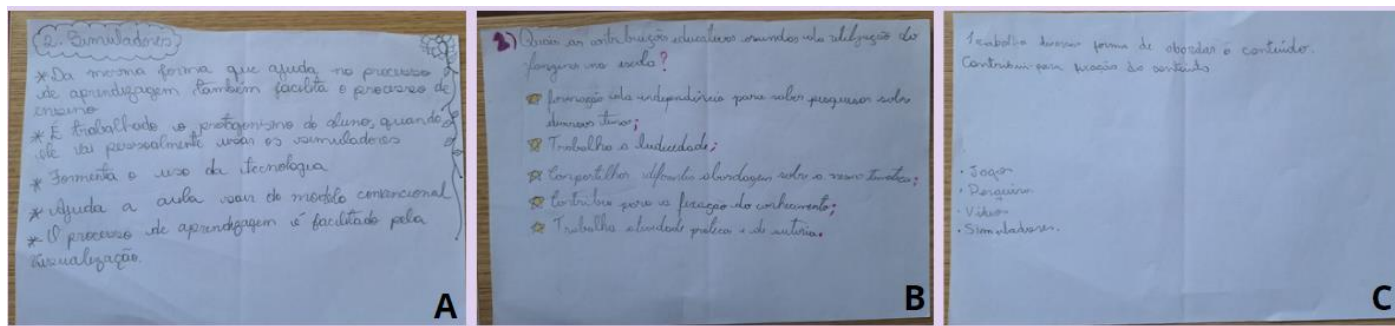 2. Simuladores
* Da mesma forma que ajuda no processo
de aprendizagem também facilita o processo de
ensino
* É trabalhado o protagonismo do aluno, quando
ele vai pessoalmente usar os simuladores
* Formenta o uso da tecnologia
* Ajuda a aula sair do modelo convencional
* O processo de aprendizagem é facilitado pela
visualização.
A
2) Quais as contribuições educativas oriundas da utilização do
na escola?
Formação da independência para saber pesquisar sobre
diversos temas;
Trabalha a ludicidade;
Compartilhar diferentes abordagem sobre a mesma temática;
Contribui para a fixação do conhecimento;
Trabalha atividade prática e de autoria.
B
Trabalha diversas forma de abordar o conteúdo.
Contribui para fixação do conteúdo
· Jogos
· Pesquisa
· Vídeos
· Simuladores.
C